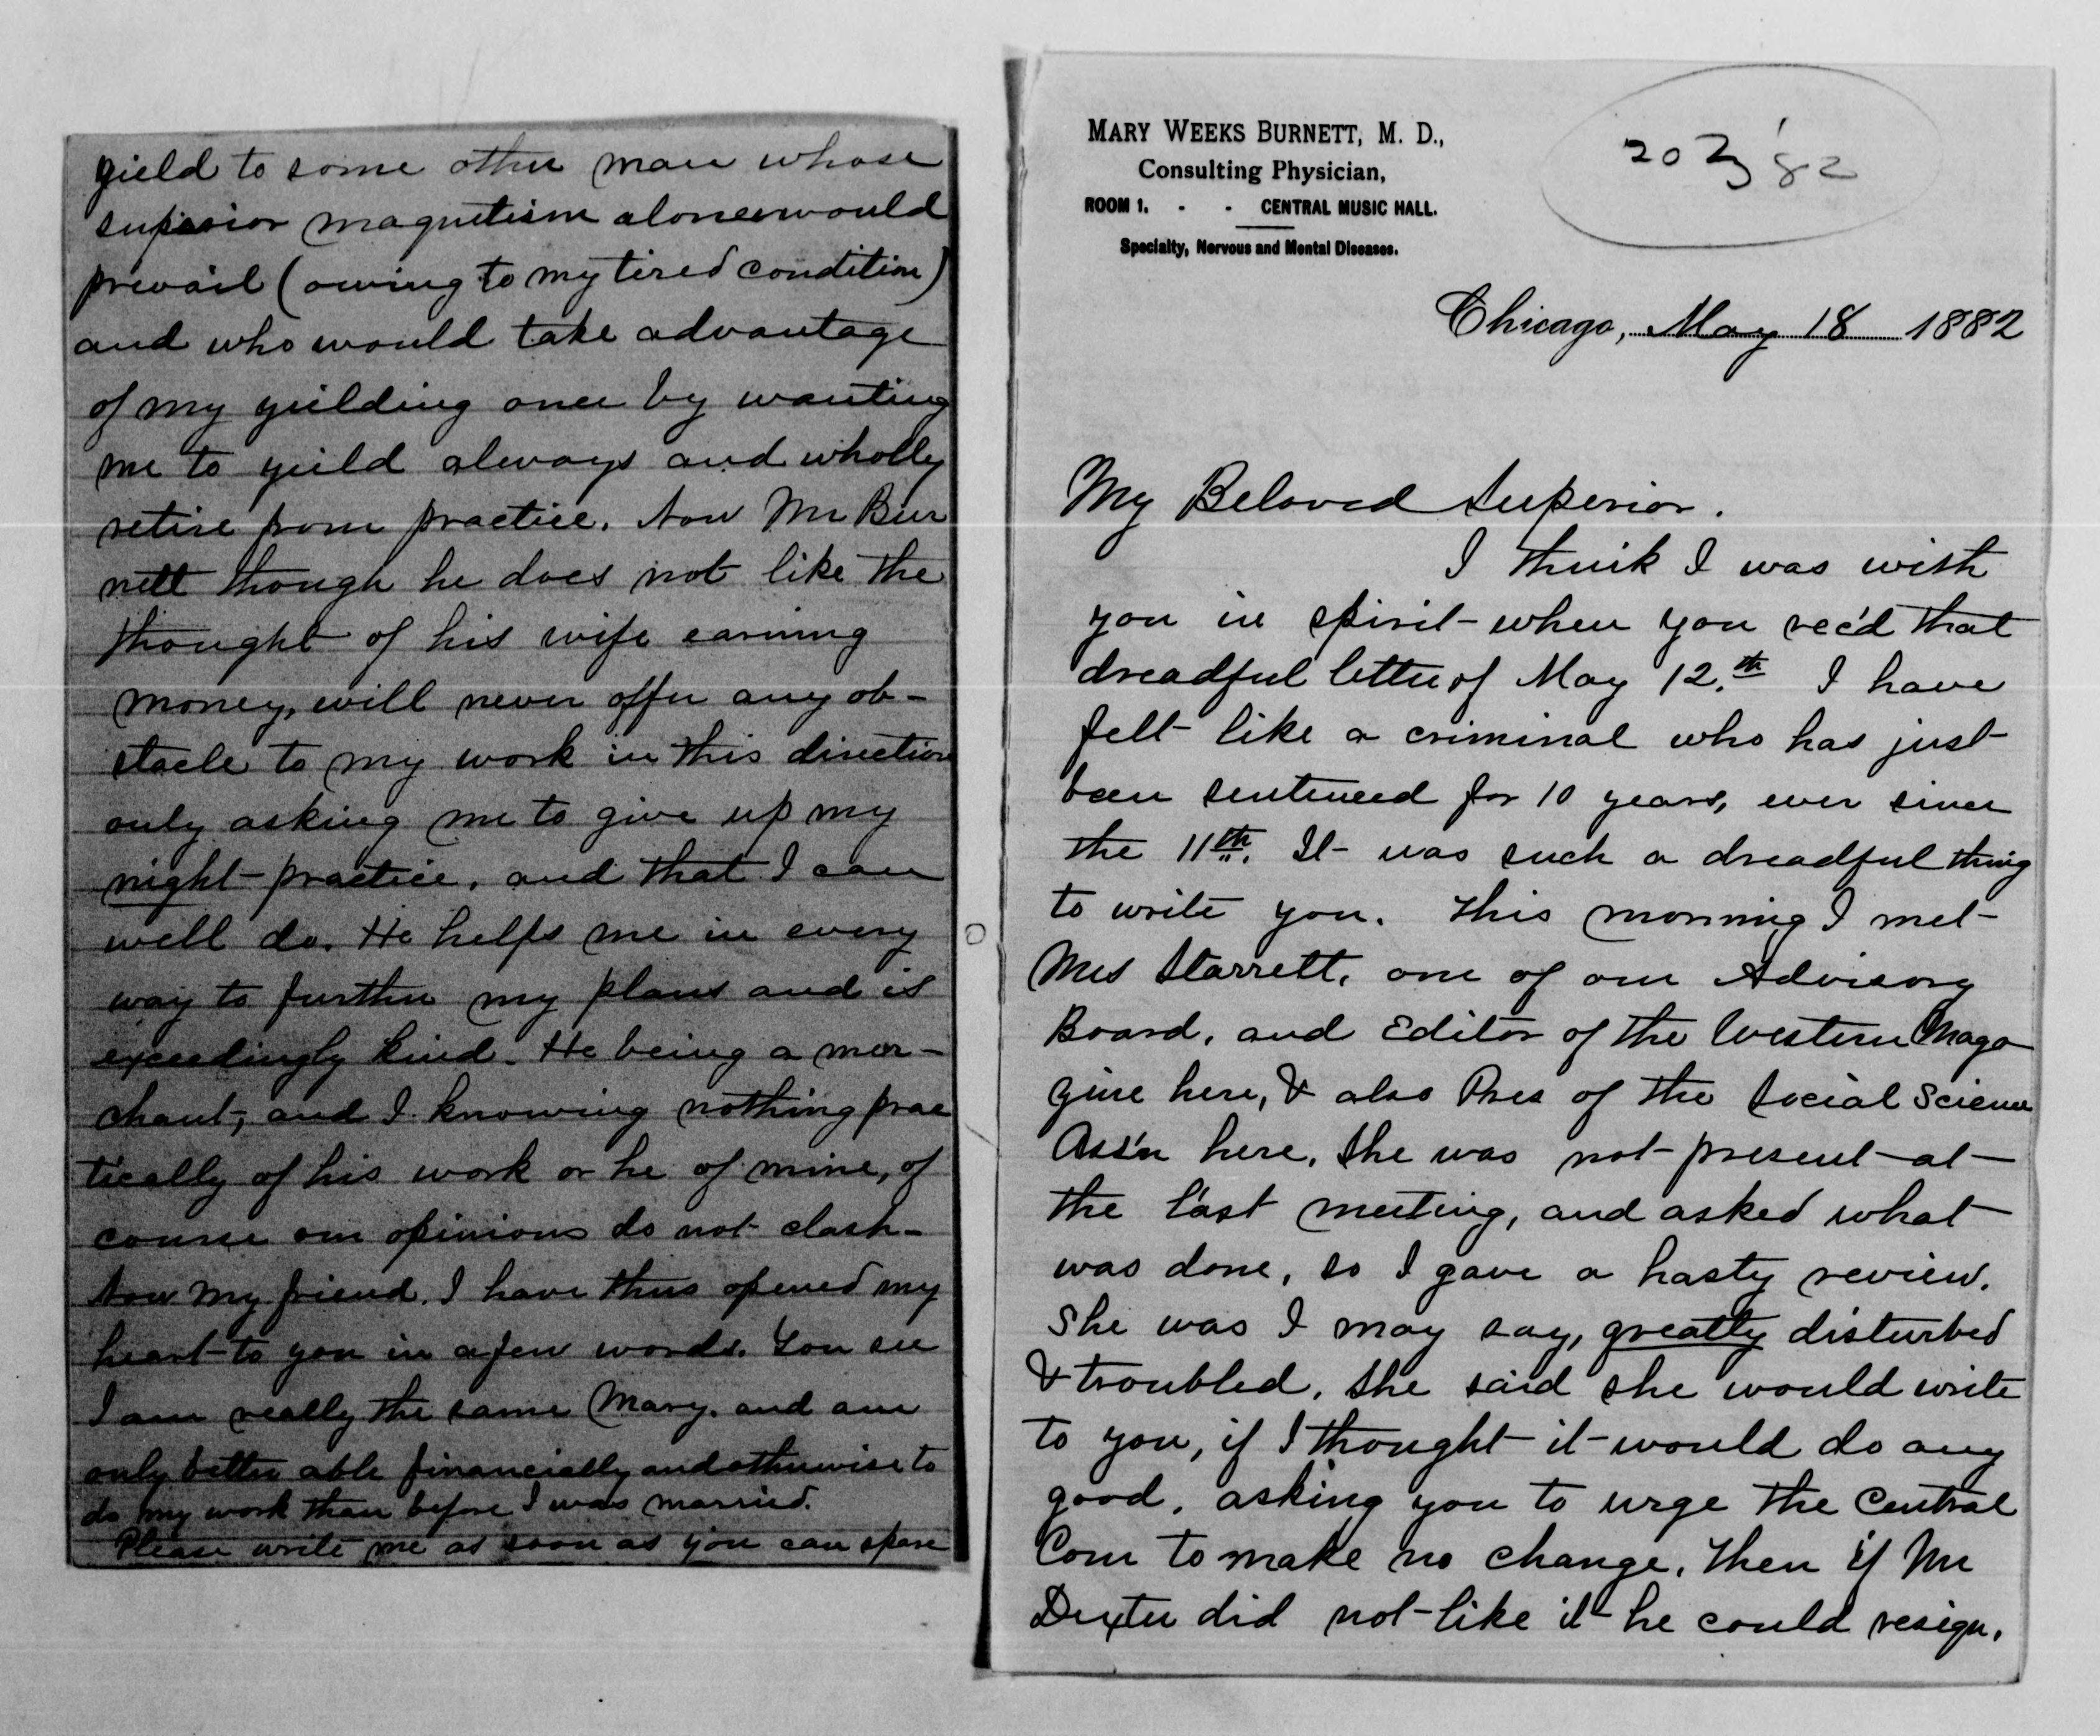 yield to some other man whose
superior magnetism alone would
prevail (owing to my tired condition)
and who would take advantage
of my yielding once by wanting
me to yield always and wholly
retire from practice. Now Mr Bur
nett though he does not like the
thought of his wife earning
money, will never offer any ob-
stacle to my work in this direction
only asking me to give up my
night-practice, and that I can
well do. He helps me in every
way to further my plans and is
exceedingly kind. He being a mer-
chant, and I knowing nothing prac
tically of his work or he of mine, of
course our opinions do not clash-
Now my friend, I have thus opened my
heart to you in a few words. You see
I am really the same Mary, and am
only better able financially and otherwise to
do my work than before I was married.
Please write me as soon as you can spare
MARY WEEKS BURNETT, M. D.,
Consulting Physician,
ROOM 1. - - CENTRAL MUSIC HALL.
Specialty, Nervous and Mental Diseases.
'82
Chicago, May 18 1882
My Beloved Superior.
I think I was with
you in spirit when you rec'd that
dreadful letter of May 12.th I have
felt like a criminal who has just
been sentenced for 10 years, ever since
the 11th. It was such a dreadful thing
to write you. This morning I met
Mrs Starrett, one of our Advisory
Board, and Editor of the Western Maga
zine here, & also Pres of the Social Science
Ass'n here, She was not present at
the last meeting, and asked what
was done, so I gave a hasty review.
She was I may say, greatly disturbed
& troubled, She said she would write
to you, if I thought it would do any
good, asking you to urge the Central
Com to make no change, Then if Mr
Dexter did not like it he could resign.